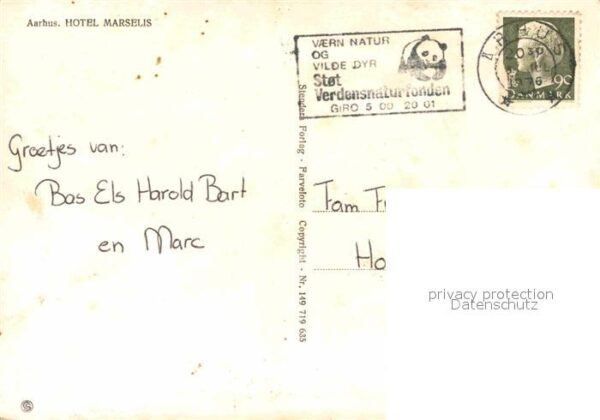 Aarhus. HOTEL MARSELIS
VÆRN NATUR
OG
VILDE DYR
Støt
Verdensnaturfonden
GIRO 5 00 20 01
ÅRHUS
90
DANMARK
Groetjes van:
Bas Els Harold Bart
en Marc
Stenders Forlag · Farvefoto Copyright · Nr. 149 719 635
Fam
Ho
privacy protection
Datenschutz